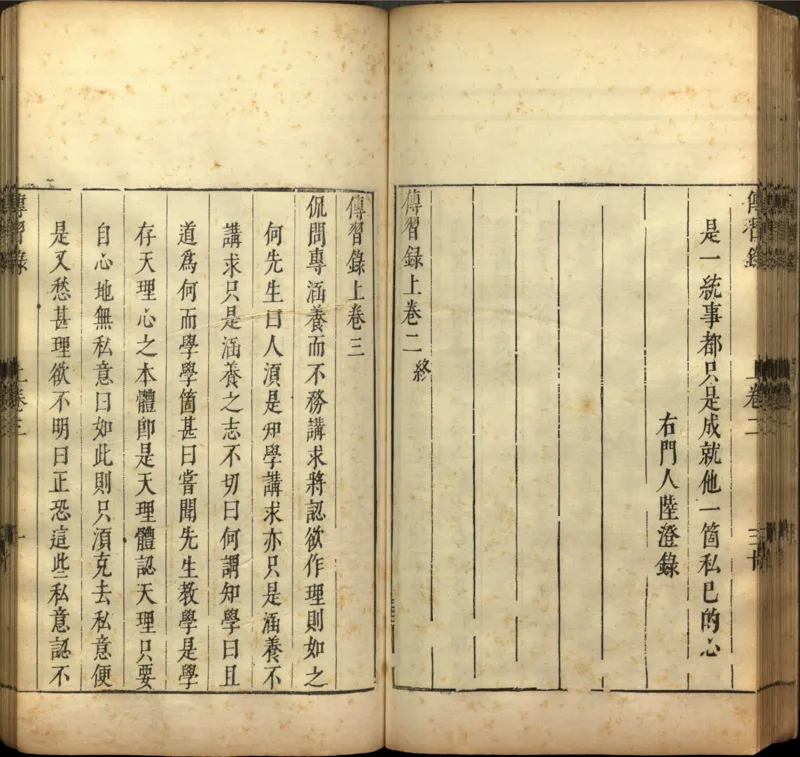 傳習錄
上卷二
是一統事都只是成就他一箇私已的心
右門人陸澄錄
傳習錄上卷二終
傳習錄上卷三
侃問專涵養而不務講求將認欲作理則如之
何先生曰人須是知學講求亦只是涵養不
講求只是涵養之志不切曰何謂知學曰且
道爲何而學學箇甚曰嘗聞先生教學是學
存天理心之本體卽是天理體認天理只要
自心地無私意曰如此則只須克去私意便
是又愁甚理欲不明曰正恐這些私意認不
傳習錄
上卷三
一